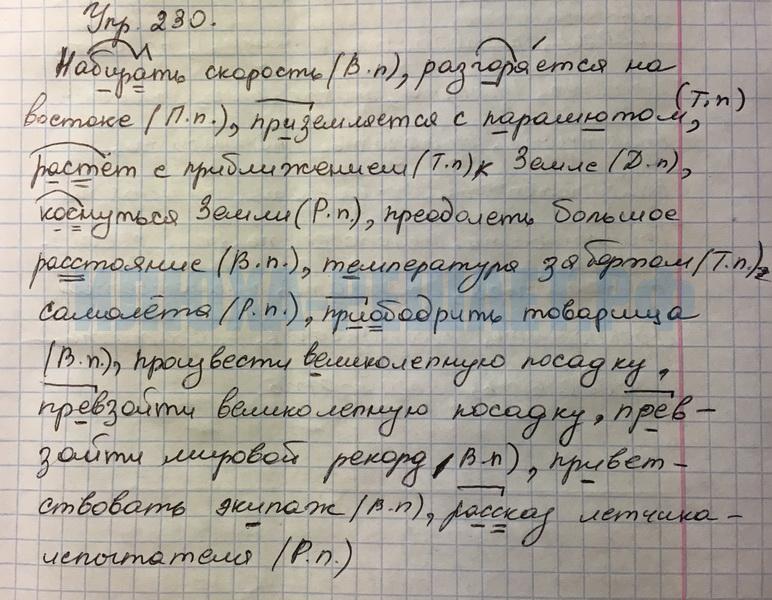 Упр. 230.
Набирать скорость (В.п), разгорается на
востоке (П.п.), приземляется с парашютом, (Т.п)
растёт с приближением (Т.п) к Земле (Д.п),
коснуться Земли (Р.п.), преодолеть большое
расстояние (В.п.), температура за бортом (Т.п.)
самолёта (Р.п.), приободрить товарища
(В.п.), произвести великолепную посадку,
превзойти великолепную посадку, прев-
зойти мировой рекорд (В.п), привет-
ствовать экипаж (В.п), рассказ летчика-
испытателя (Р.п.)